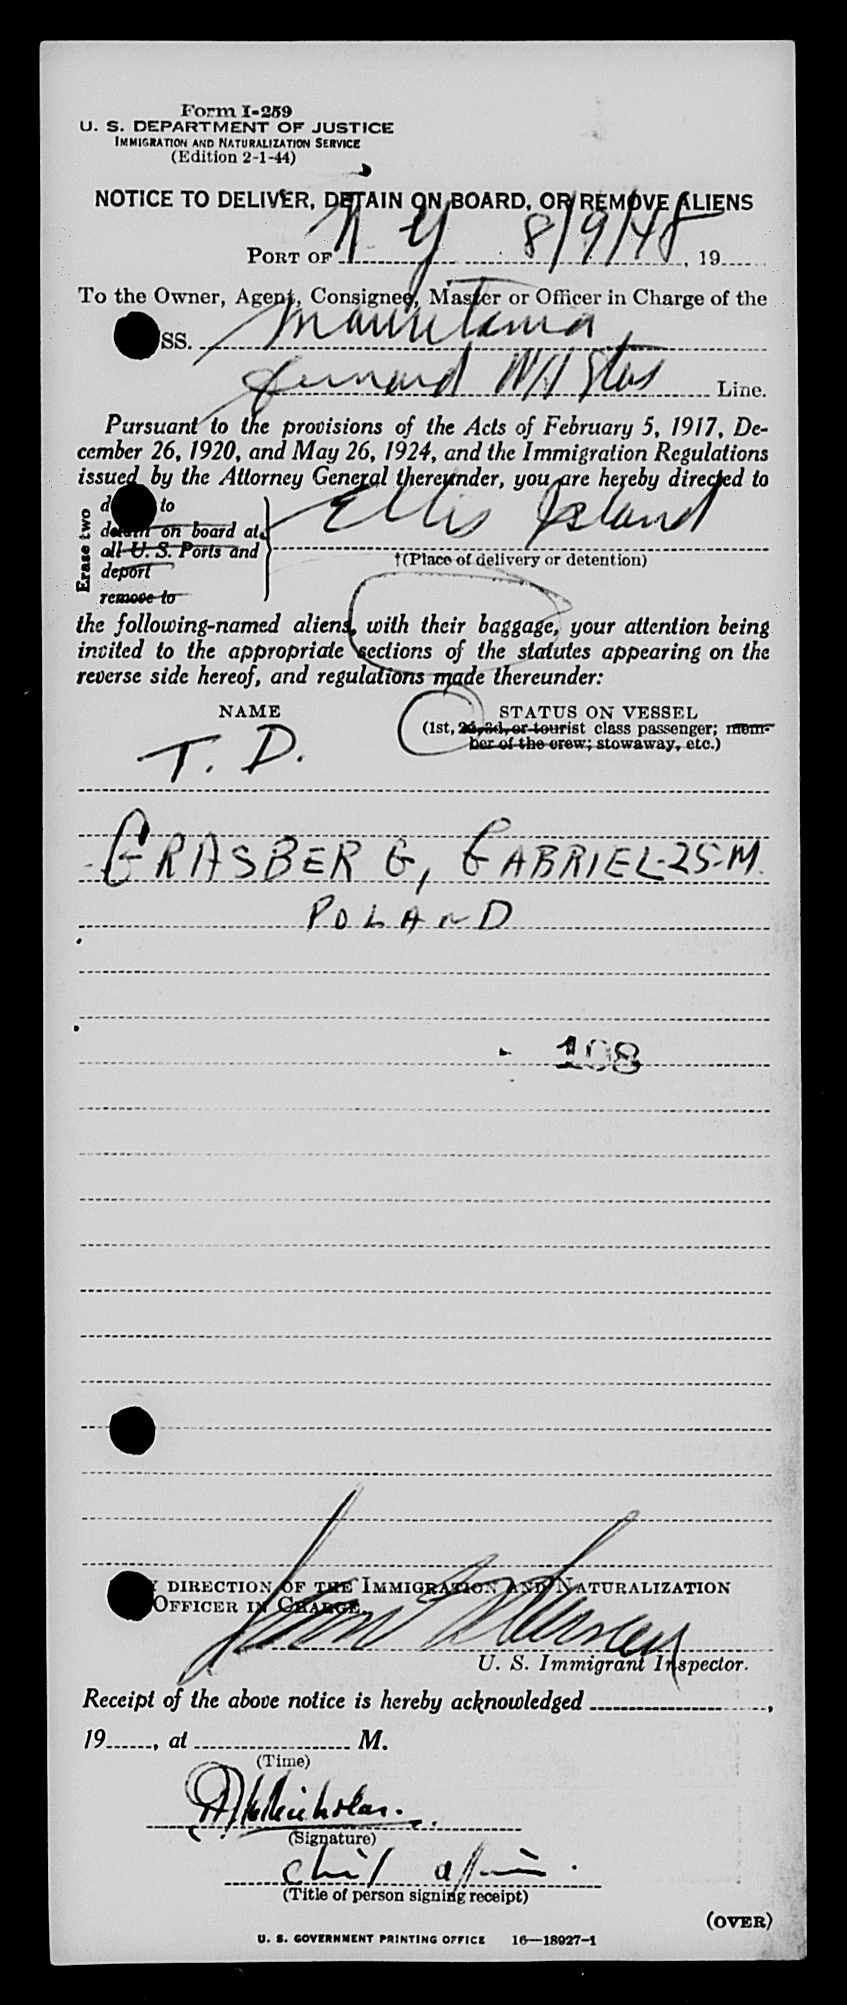 Form I-259
U. S. DEPARTMENT OF JUSTICE
IMMIGRATION AND NATURALIZATION SERVICE
(Edition 2-1-44)
NOTICE TO DELIVER, DETAIN ON BOARD, OR REMOVE ALIENS
PORT OF N Y 8/9/48, 19
To the Owner, Agent, Consignee, Master or Officer in Charge of the
SS. Mauretania
Line.
Pursuant to the provisions of the Acts of February 5, 1917, De-
cember 26, 1920, and May 26, 1924, and the Immigration Regulations
issued by the Attorney General thereunder, you are hereby directed to
Erase two
to
detain on board at Ellis Island
all U. S. Ports and
†(Place of delivery or detention)
deport
remove to
the following-named aliens, with their baggage, your attention being
invited to the appropriate sections of the statutes appearing on the
reverse side hereof, and regulations made thereunder:
NAME STATUS ON VESSEL
(1st, 2d, 3d, or tourist class passenger; mem-
ber of the crew; stowaway, etc.)
T. D.
GRASBERG, GABRIEL-25-M.
POLAND
108
DIRECTION OF THE IMMIGRATION AND NATURALIZATION
OFFICER IN CHARGE.
U. S. Immigrant Inspector.
Receipt of the above notice is hereby acknowledged ,
19, at M.
(Time)
(Signature)
(Title of person signing receipt)
(OVER)
U. S. GOVERNMENT PRINTING OFFICE 16—18927-1